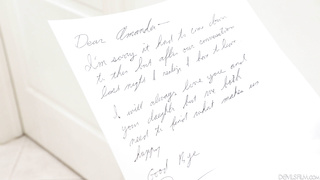 Dear Amanda—
I'm sorry it had to come down
to this but after our conversation
last night I realize I have to leave.
I will always love you and
your daughter but we both
need to find what makes us
happy.
Good Bye